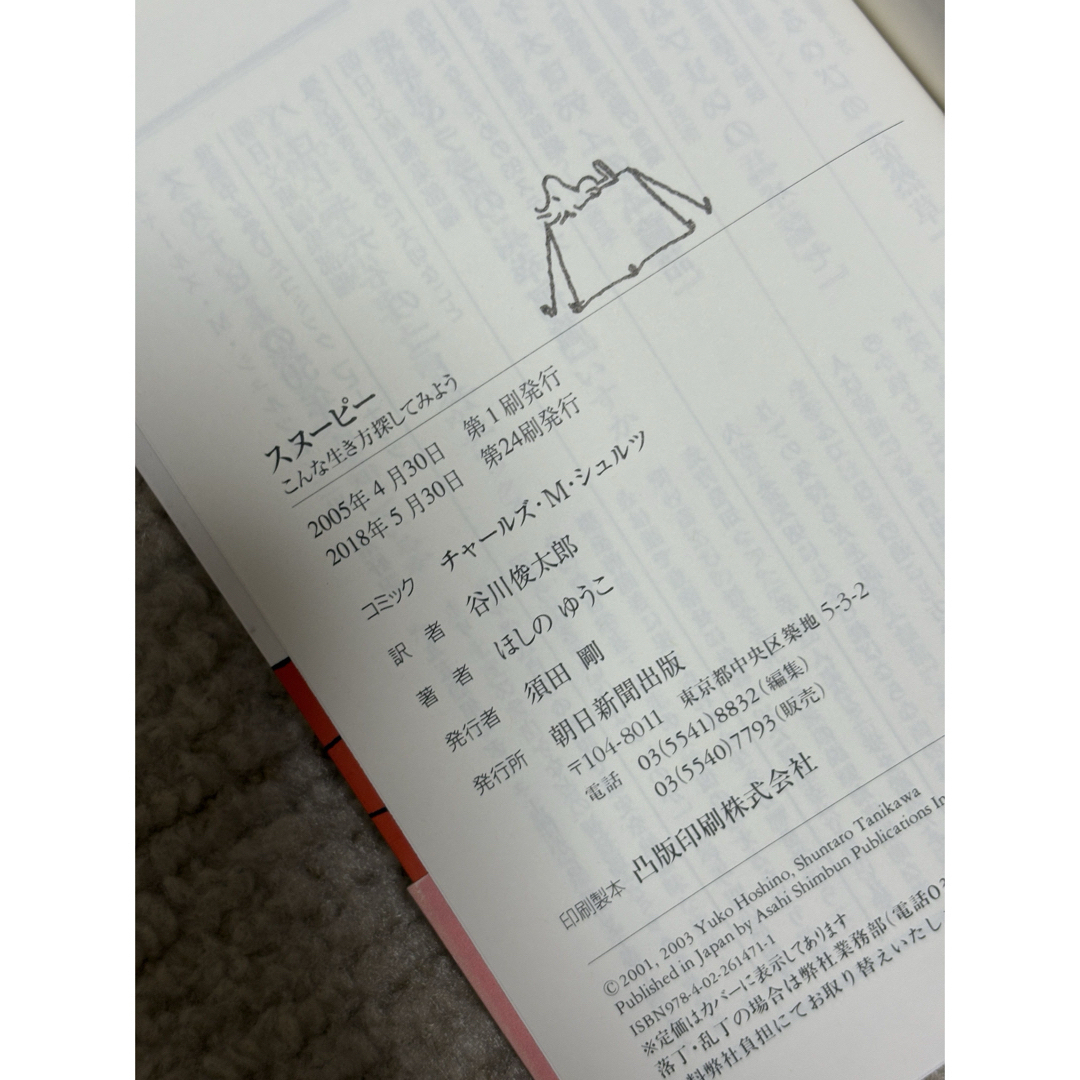 スヌーピー
こんな生き方探してみよう
2005年4月30日 第1刷発行
2018年5月30日 第24刷発行
コミック チャールズ・M・シュルツ
訳者 谷川俊太郎
著者 ほしの ゆうこ
発行者 須田 剛
発行所 朝日新聞出版
〒104-8011 東京都中央区築地5-3-2
電話 03(5541)8832(編集)
03(5540)7793(販売)
印刷製本 凸版印刷株式会社
©2001, 2003 Yuko Hoshino, Shuntaro Tanikawa
Published in Japan by Asahi Shimbun Publications In
ISBN978-4-02-261471-1
※定価はカバーに表示してあります
落丁・乱丁の場合は弊社業務部(電話03
料弊社負担にてお取り替えいたし